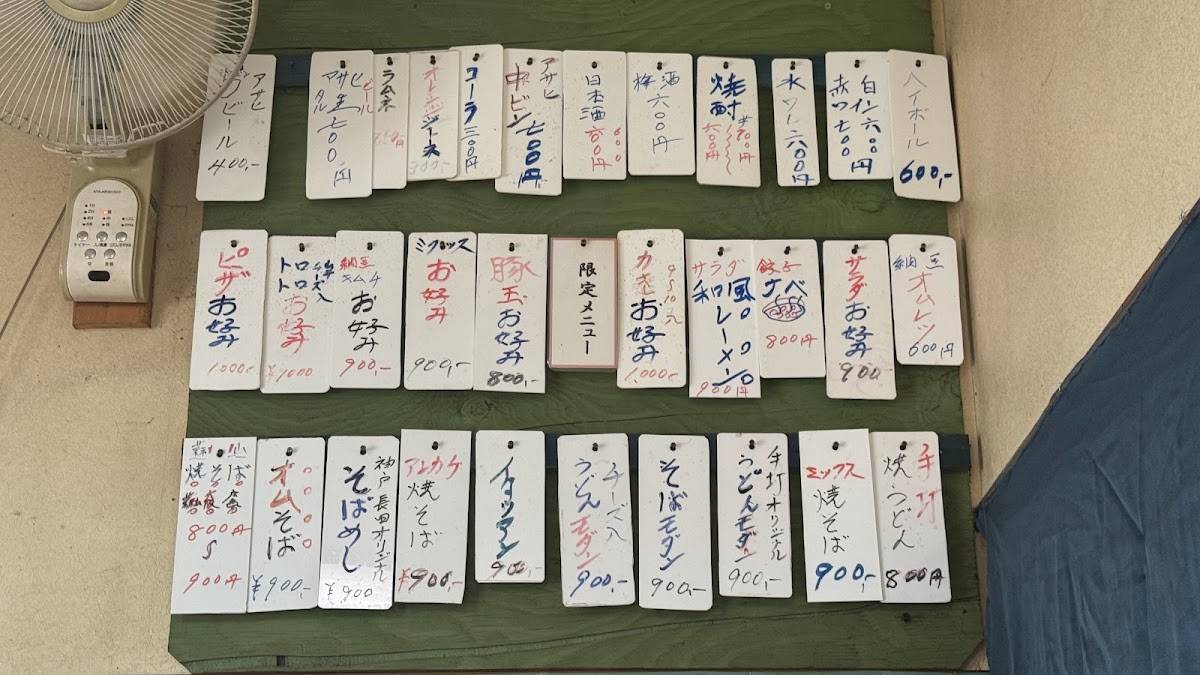 アサヒ
ビール
400,-
アサヒ
ビール
七00円
ラムネ
オレンジジュース
300円
コーラ 300円
アサヒ
中ビン
七00円
日本酒
600円
梅酒
六00円
焼酎
六00円
水ワリ 六00円
白ワイン 六00円
赤ワ 七00
ハイボール
600,-
ピザお好み
1000,-
トロトロ
チーズ入
お好み
¥1000
納豆
キムチ
お好み
900,-
ミックス
お好み
900,-
豚玉お好み
800,-
限定メニュー
カキお好み
1,000,-
サラダ
和風
レーメン
900円
餃子
ナベ
800円
サラダお好み
900
納豆
オムレツ
600円
焼そば
800円
900円
オムそば
¥900,-
神戸長田オリジナル
そばめし
¥900
アンカケ
焼そば
¥900,-
イタリアン
900,-
チーズ入
うどんモダン
900,-
そばモダン
900,-
手打オリジナル
うどんモダン
900,-
ミックス
焼そば
900,-
手打
焼うどん
800円